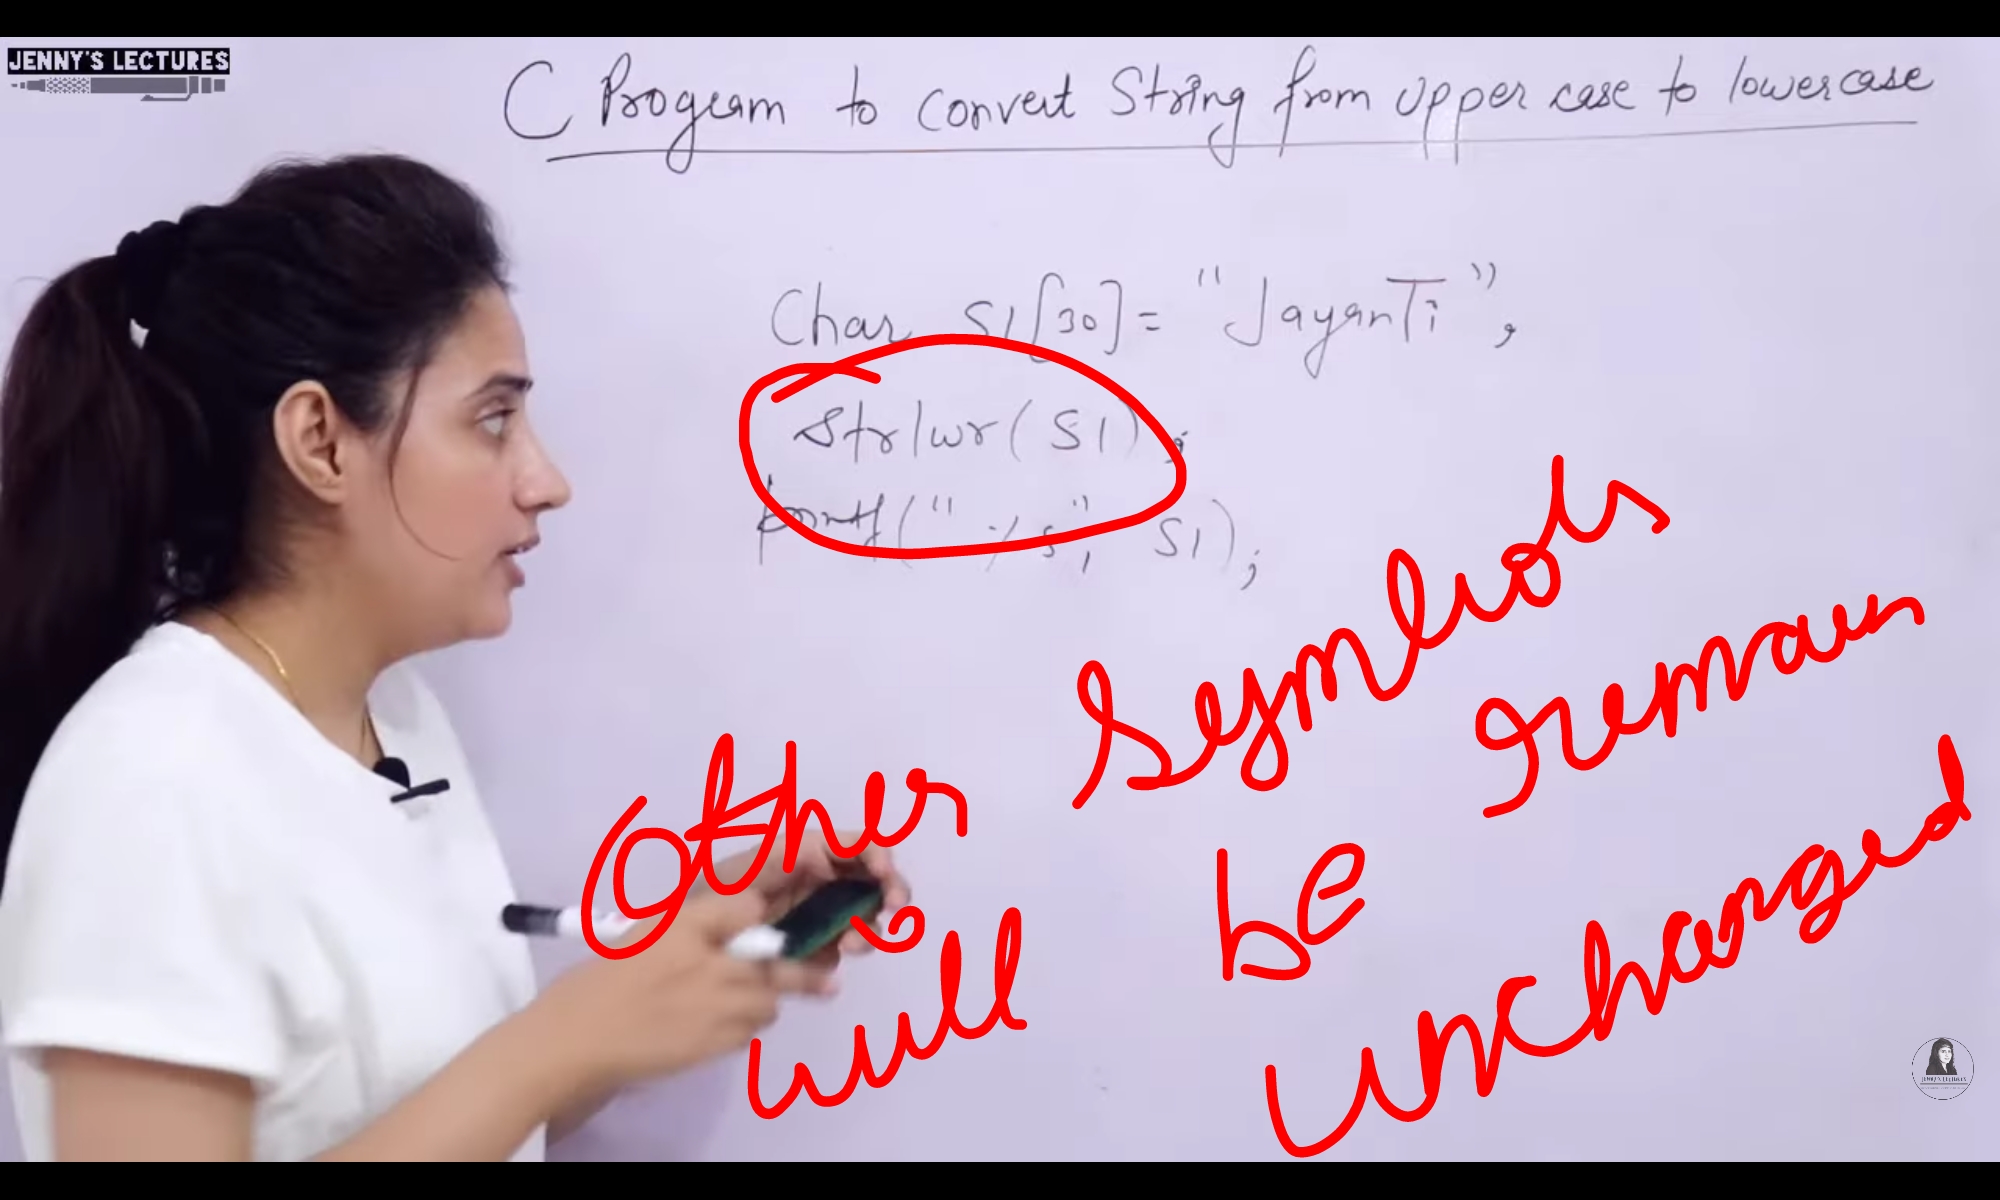 JENNY'S LECTURES
C Program to convert String from upper case to lowercase
Char S1[30] = "JayanTi",
Strlwr(S1);
printf("%s", S1);
Other Symbols
will be remain
unchanged
JENNY'S LECTURES